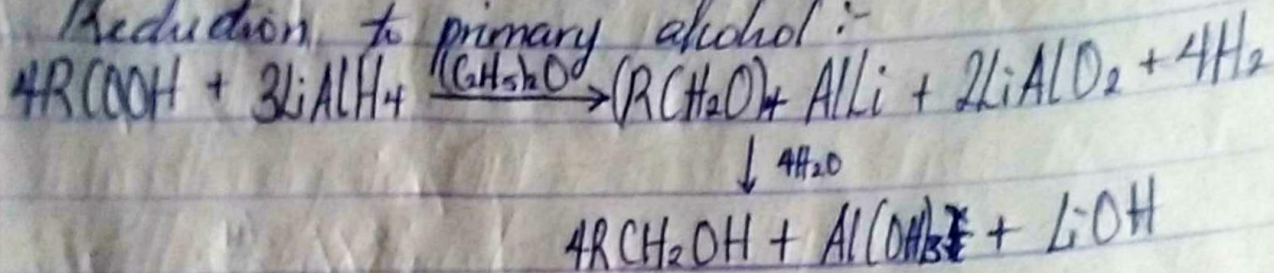 Reduction to primary alcohol :-
4RCOOH + 3LiAlH4 (C2H5)2O → (RCH2O)4 AlLi + 2LiAlO2 + 4H2
↓ 4H2O
4RCH2OH + Al(OH)3 + LiOH